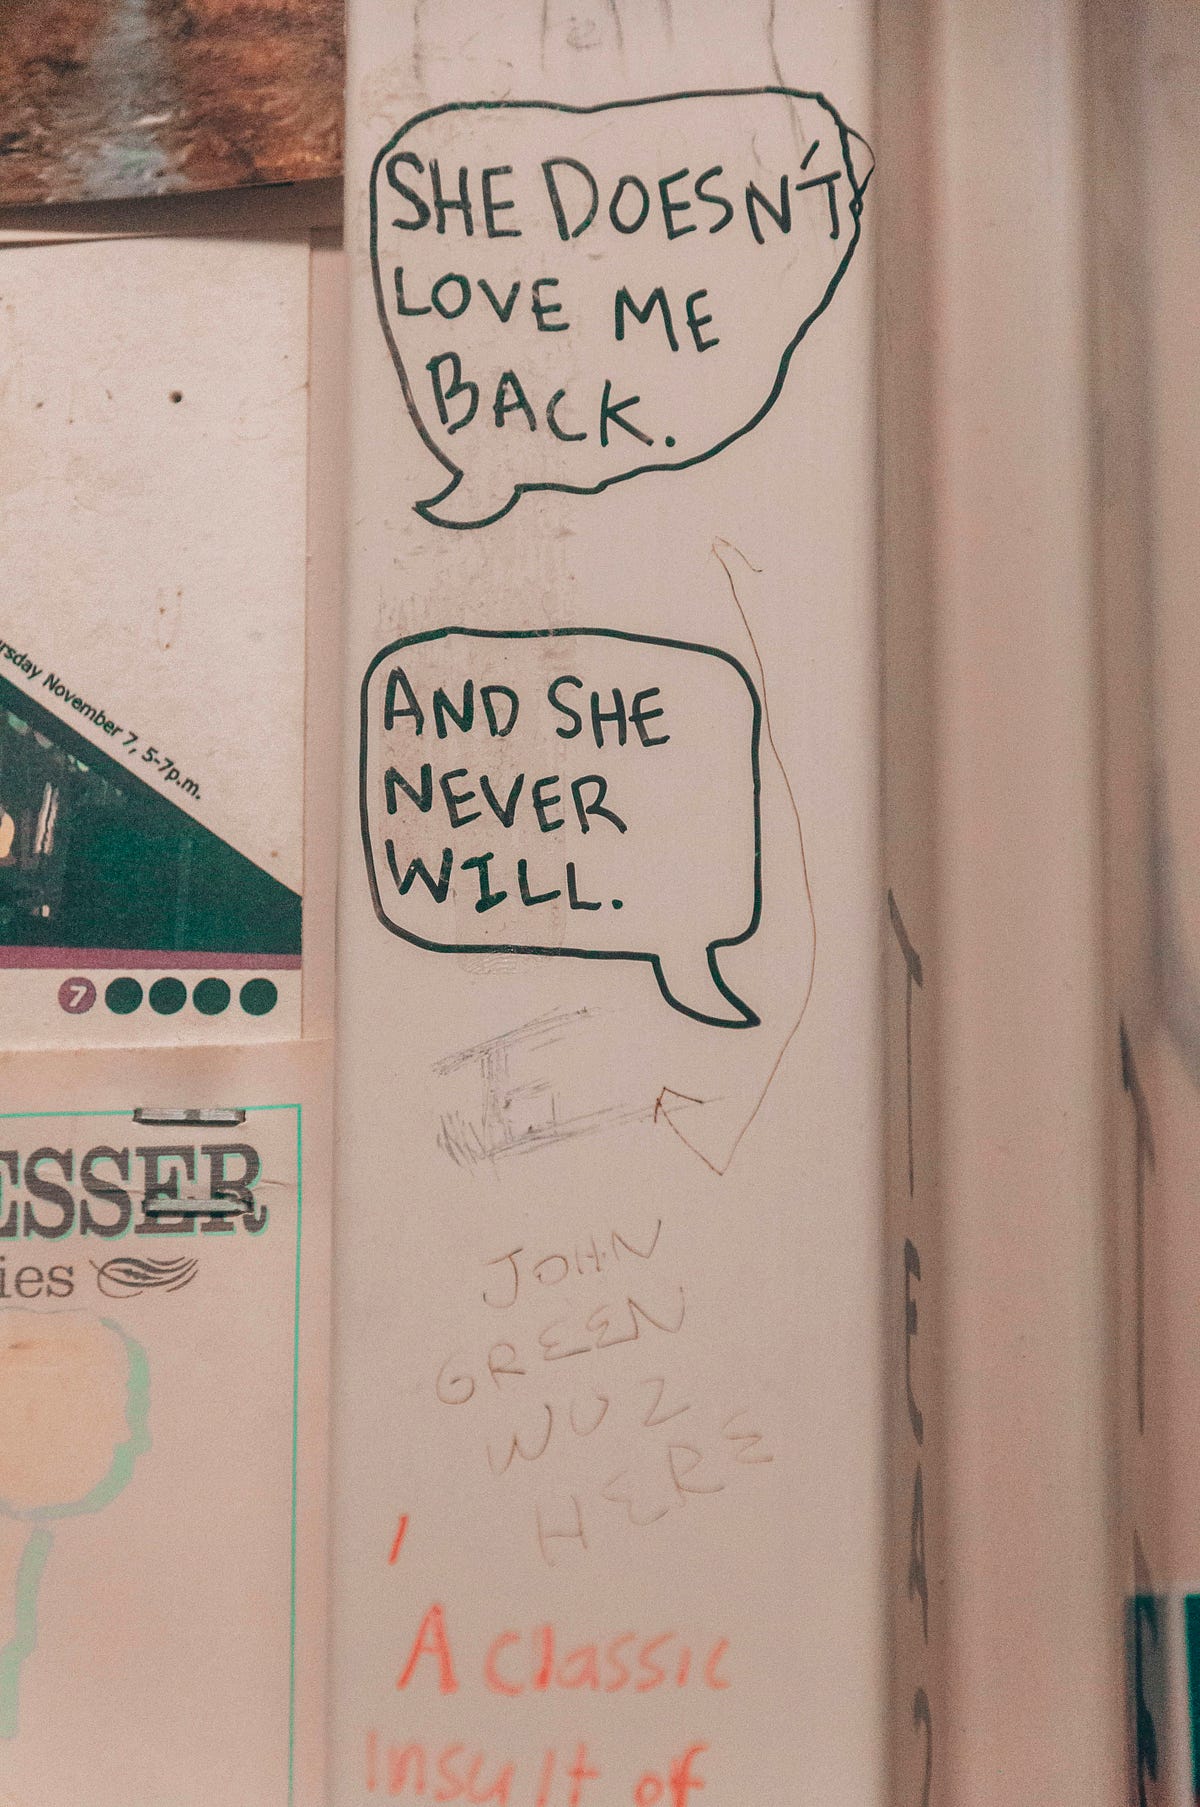 SHE DOESN'T
LOVE ME
BACK.
AND SHE
NEVER
WILL.
JOHN
GREEN
WUZ
HERE
A classic
Insult of
November 7, 5-7p.m.
7
ESSER
ies